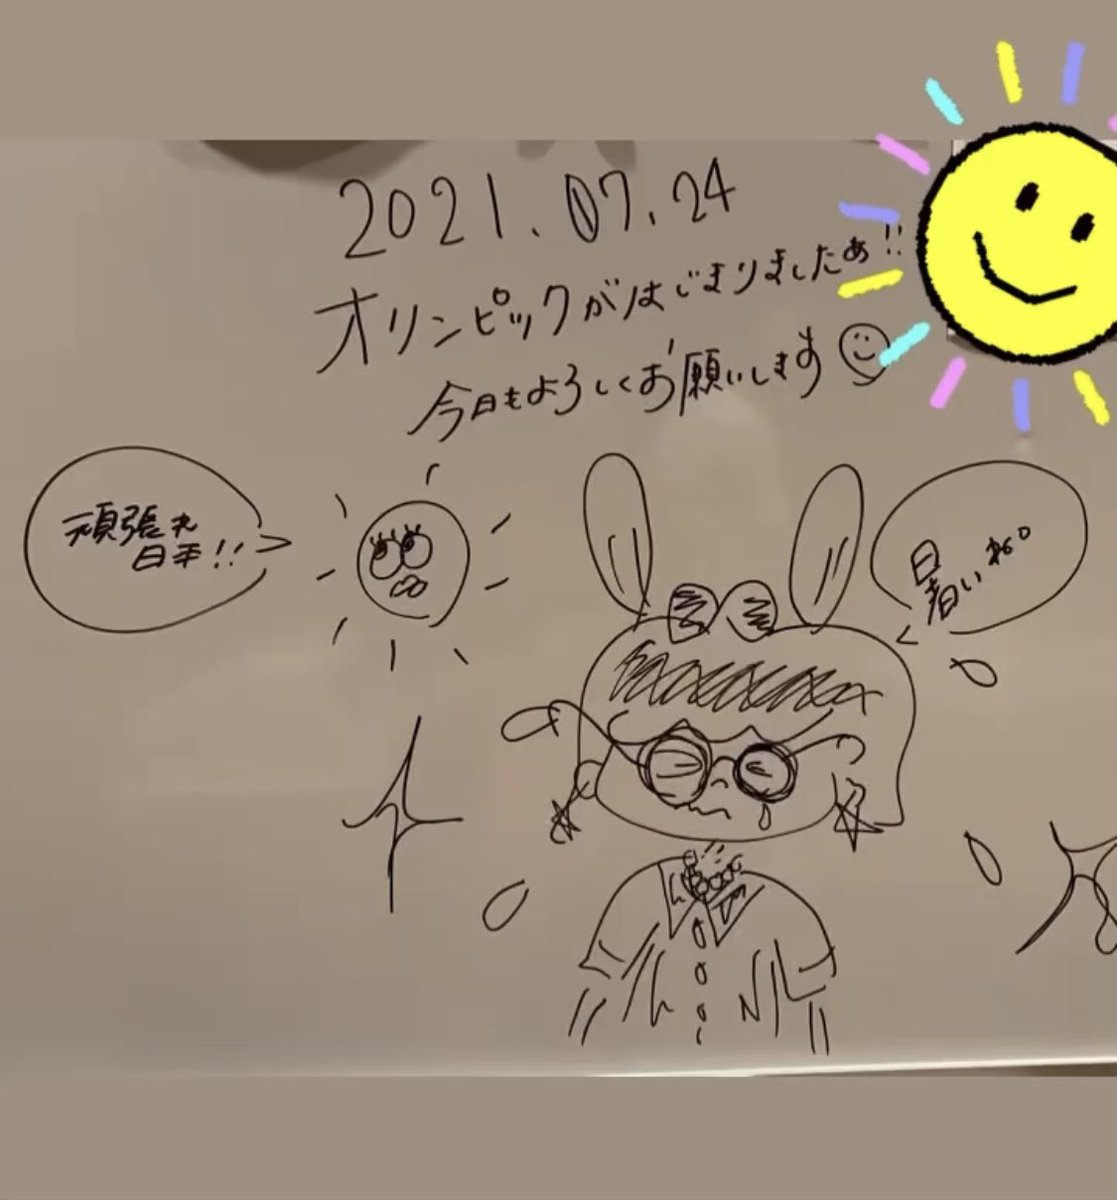 2021.07.24
オリンピックがはじまりましたぁ!!
今日もよろしくお願いします
頑張れ
日本!!
暑いね。